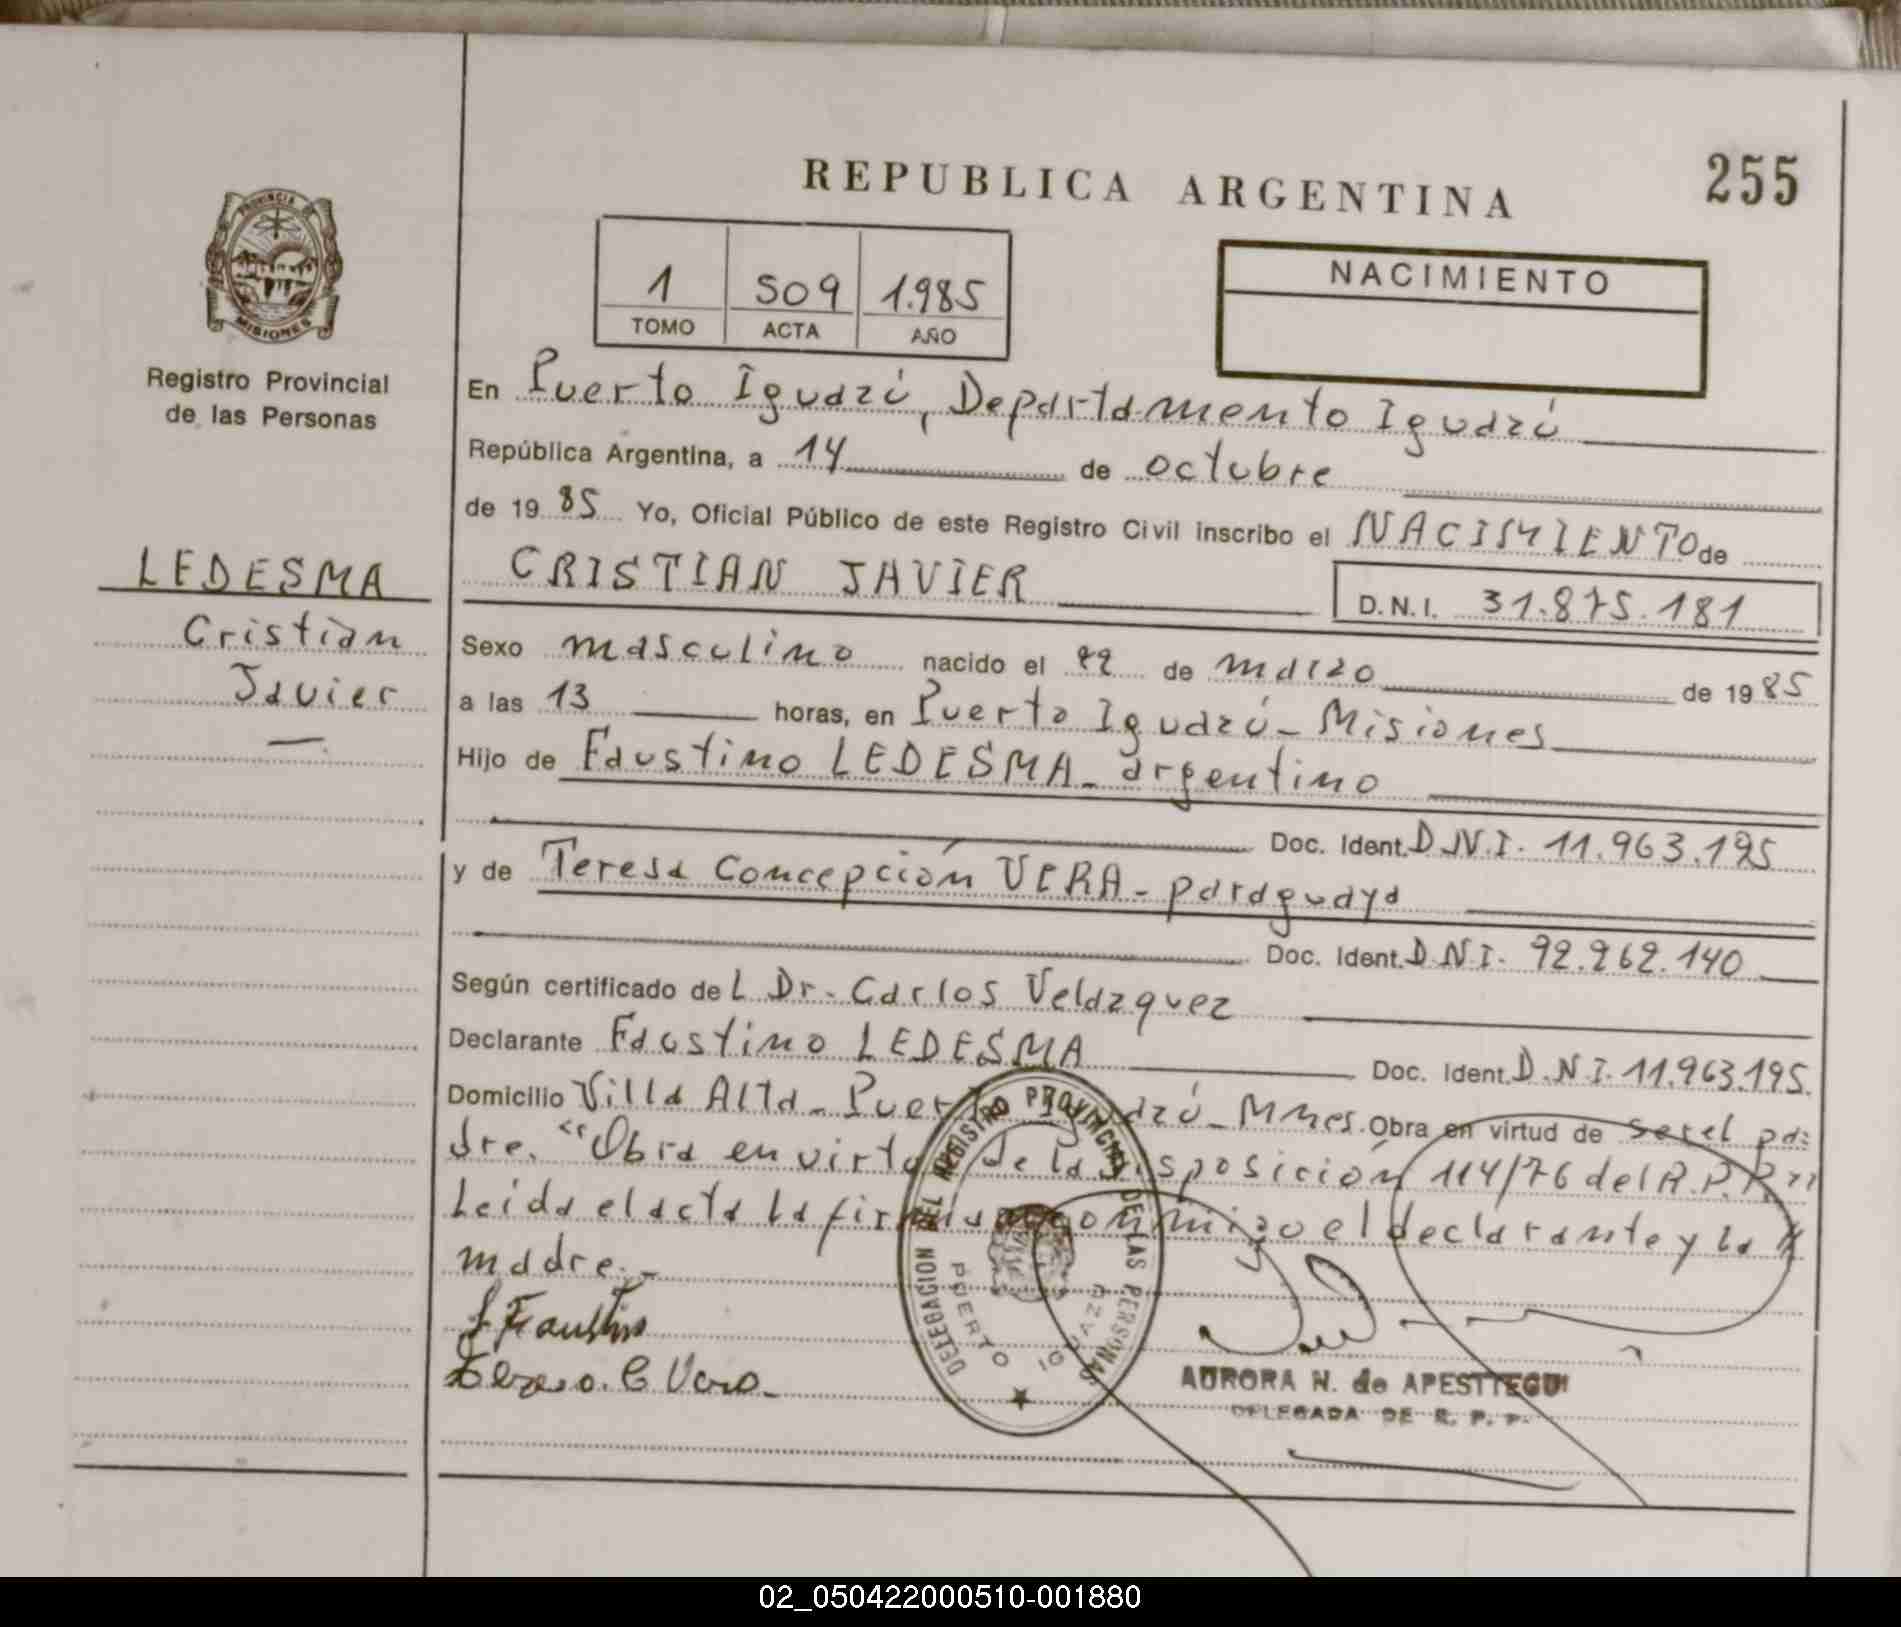 REPUBLICA ARGENTINA
255
PROVINCIA DE
MISIONES
Registro Provincial
de las Personas
1 509 1.985
TOMO ACTA AÑO
NACIMIENTO
En Puerto Iguazú, Departamento Iguazú
República Argentina, a 14 de octubre
de 1985 Yo, Oficial Público de este Registro Civil inscribo el NACIMIENTO de
CRISTIAN JAVIER
D.N.I. 31.875.181
LEDESMA
Cristian
Javier
Sexo masculino nacido el 22 de marzo de 1985
a las 13 horas, en Puerto Iguazú - Misiones
Hijo de Faustino LEDESMA - argentino
Doc. Ident. D.N.I. 11.963.195
y de Teresa Concepción VERA - paraguaya
Doc. Ident. D.N.I. 92.262.140
Según certificado del Dr. Carlos Velazquez
Declarante Faustino LEDESMA Doc. Ident. D.N.I. 11.963.195.
Domicilio Villa Alta - Puerto Iguazú - Mnes. Obra en virtud de ser el pa=
dre. "Obra en virtud de la disposición 114/76 del R.P.P."
Leida el acta la firman conmigo el declarante y la
madre. -
L Faustino
Teresa. C Vera -
DELEGACION DEL REGISTRO PROVINCIAL DE LAS PERSONAS
PUERTO IGUAZU
AURORA N. de APESTTEGUI
DELEGADA DE R. P. P.
02_050422000510-001880